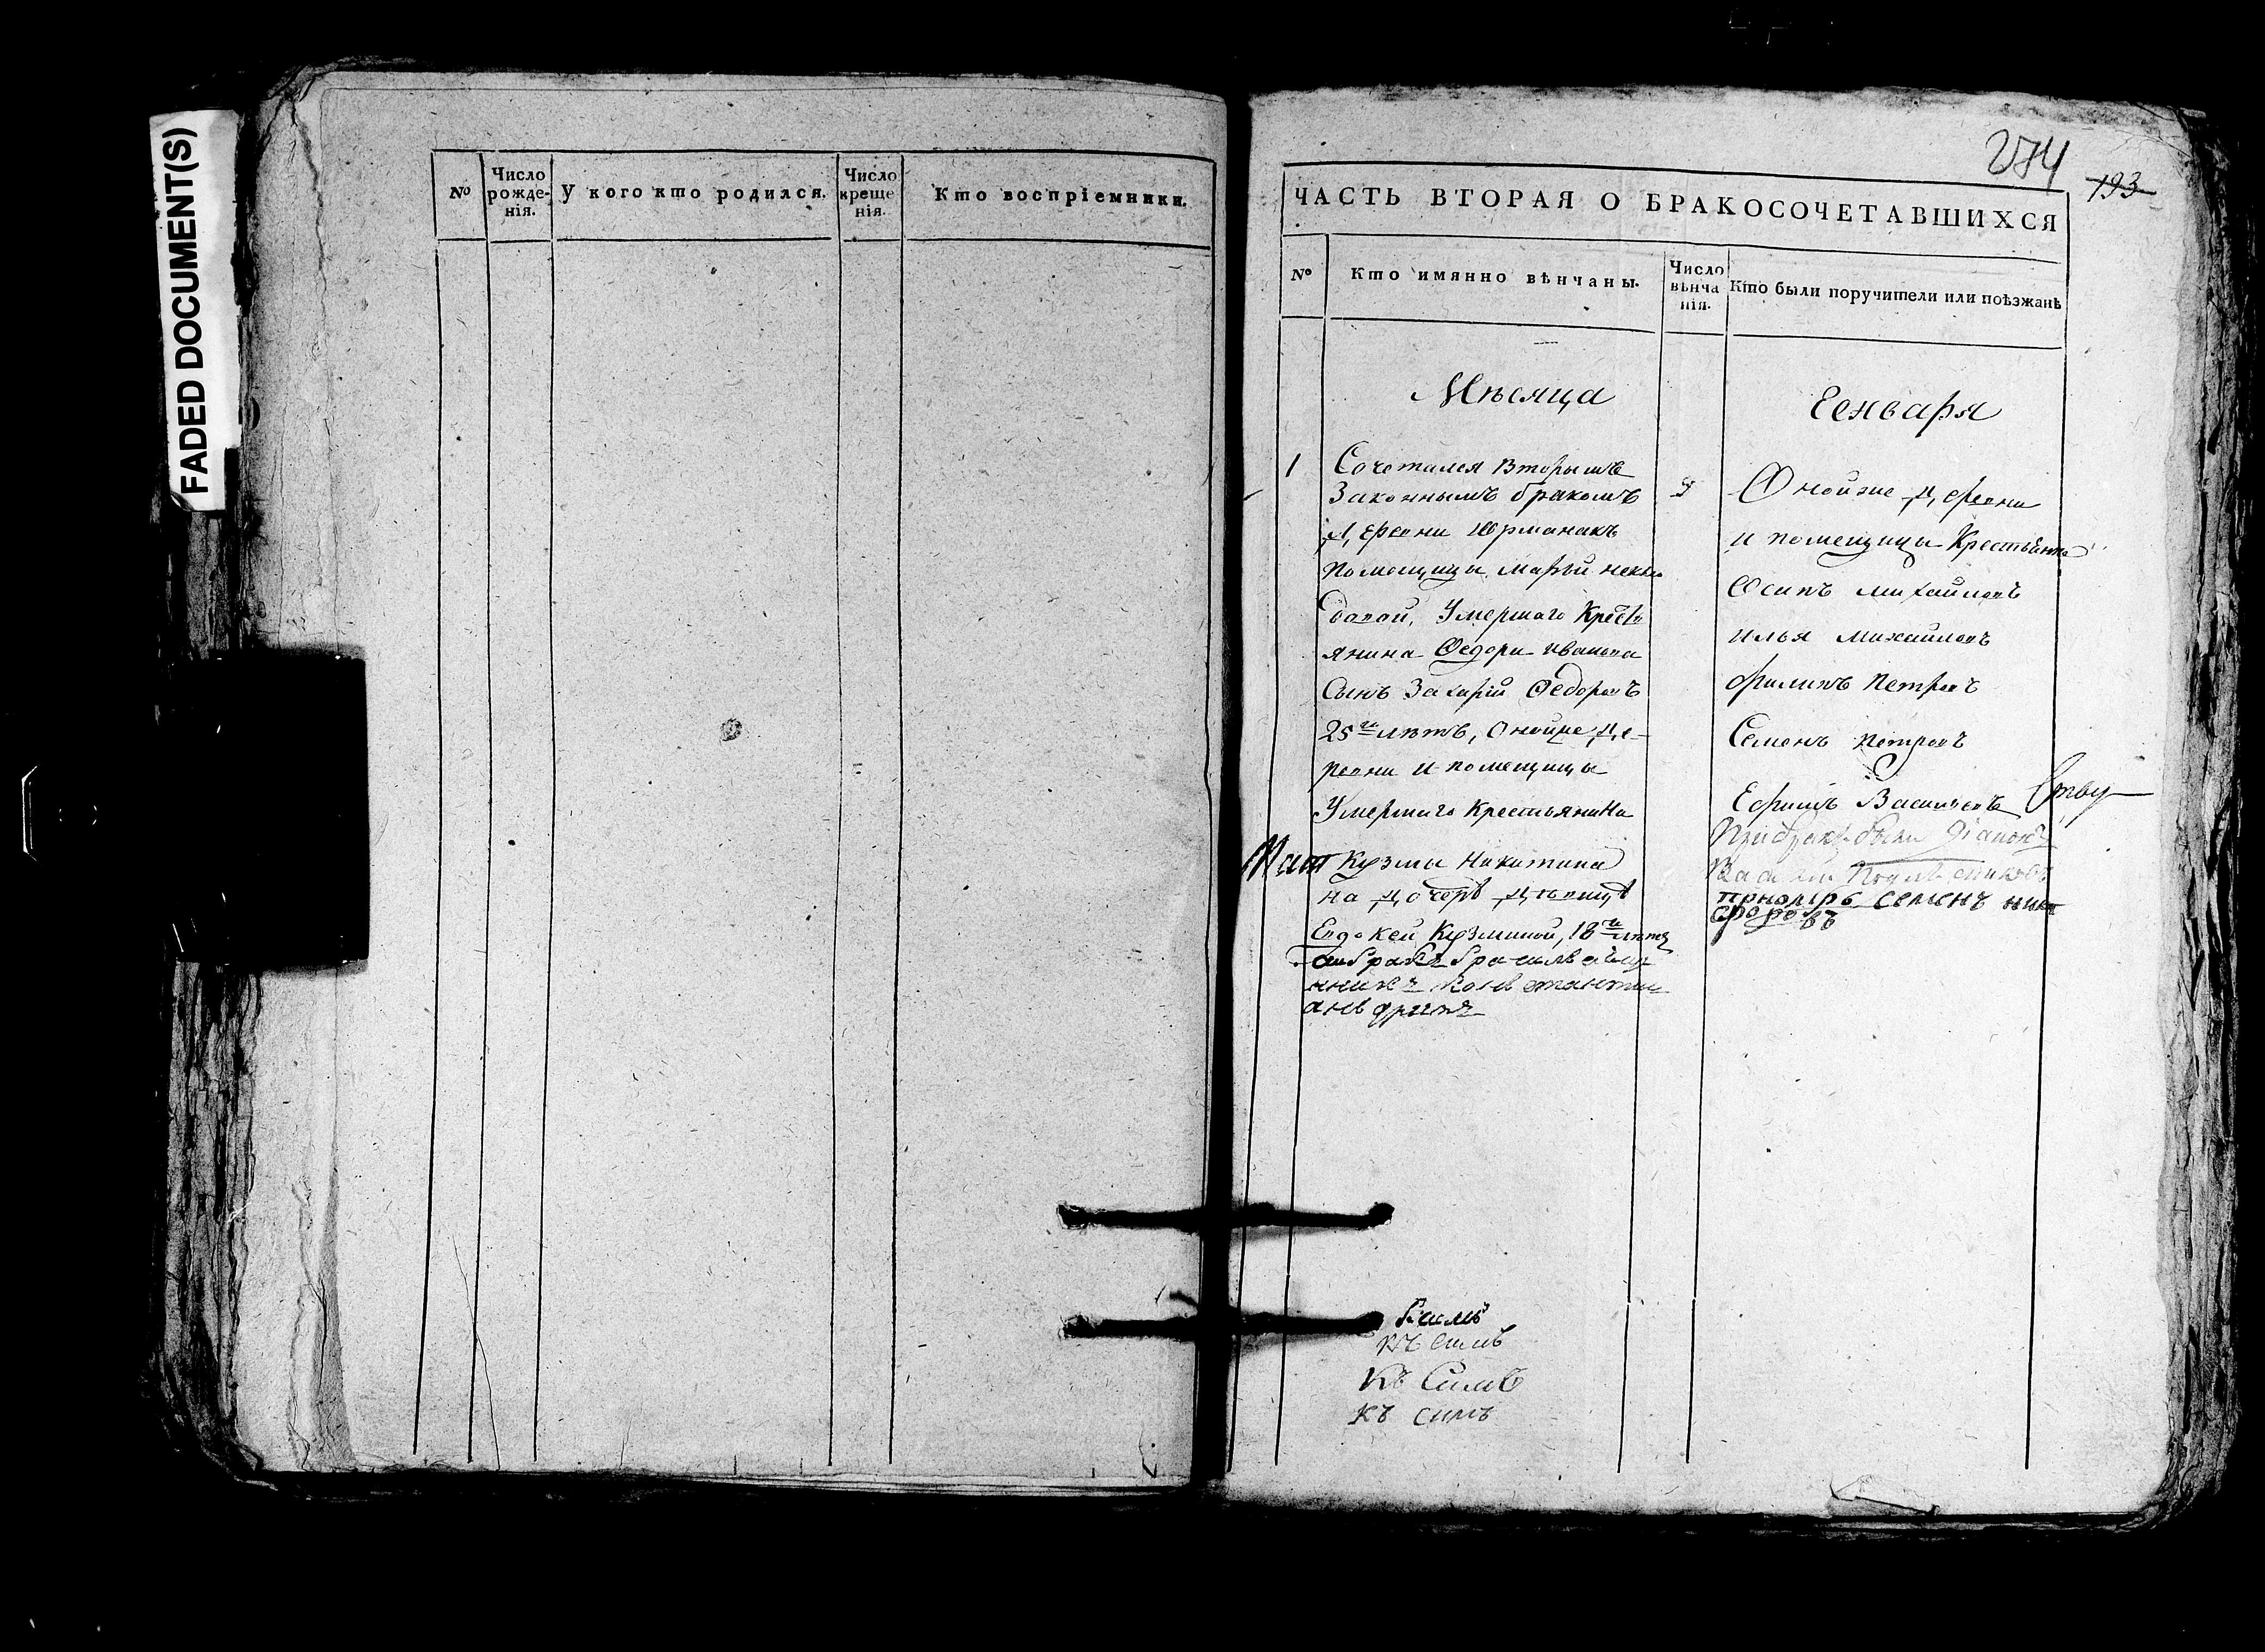 FADED DOCUMENT(S)
№
Число рожде-нія.
У кого кто родился.
Число креще нія.
Кто воспріемники.
274
193
ЧАСТЬ ВТОРАЯ О БРАКОСОЧЕТАВШИХСЯ
№
Кто имянно вѣнчаны.
Число вѣнча нія.
Кто были поручители или поѣзжанѣ
Мѣсяца
Генваря
1
Сочетался вторымъ
Законнымъ бракомъ
Деревни Юрманакъ
помещицы Марьи
умершаго Кресть
янина Федора Иванова
Сынъ Захарій Федоровъ
25ти лѣтъ, Онойже де-
ревни и помещицы
Умершаго Крестьянина
Кузмы Никитина
на дочерѣ девицѣ
Евдокеи Кузминой, 18ти лѣтъ
Онойже деревни
и помещицы Крестьяне
Осипъ Михайловъ
Илья Михайловъ
Филипъ Петровъ
Семенъ Петровъ
Ефимъ Васильевъ
При бракѣ были Діаконъ
Василій
пономарь Семенъ Ники
форовъ
къ симъ
Къ Симъ
къ симъ